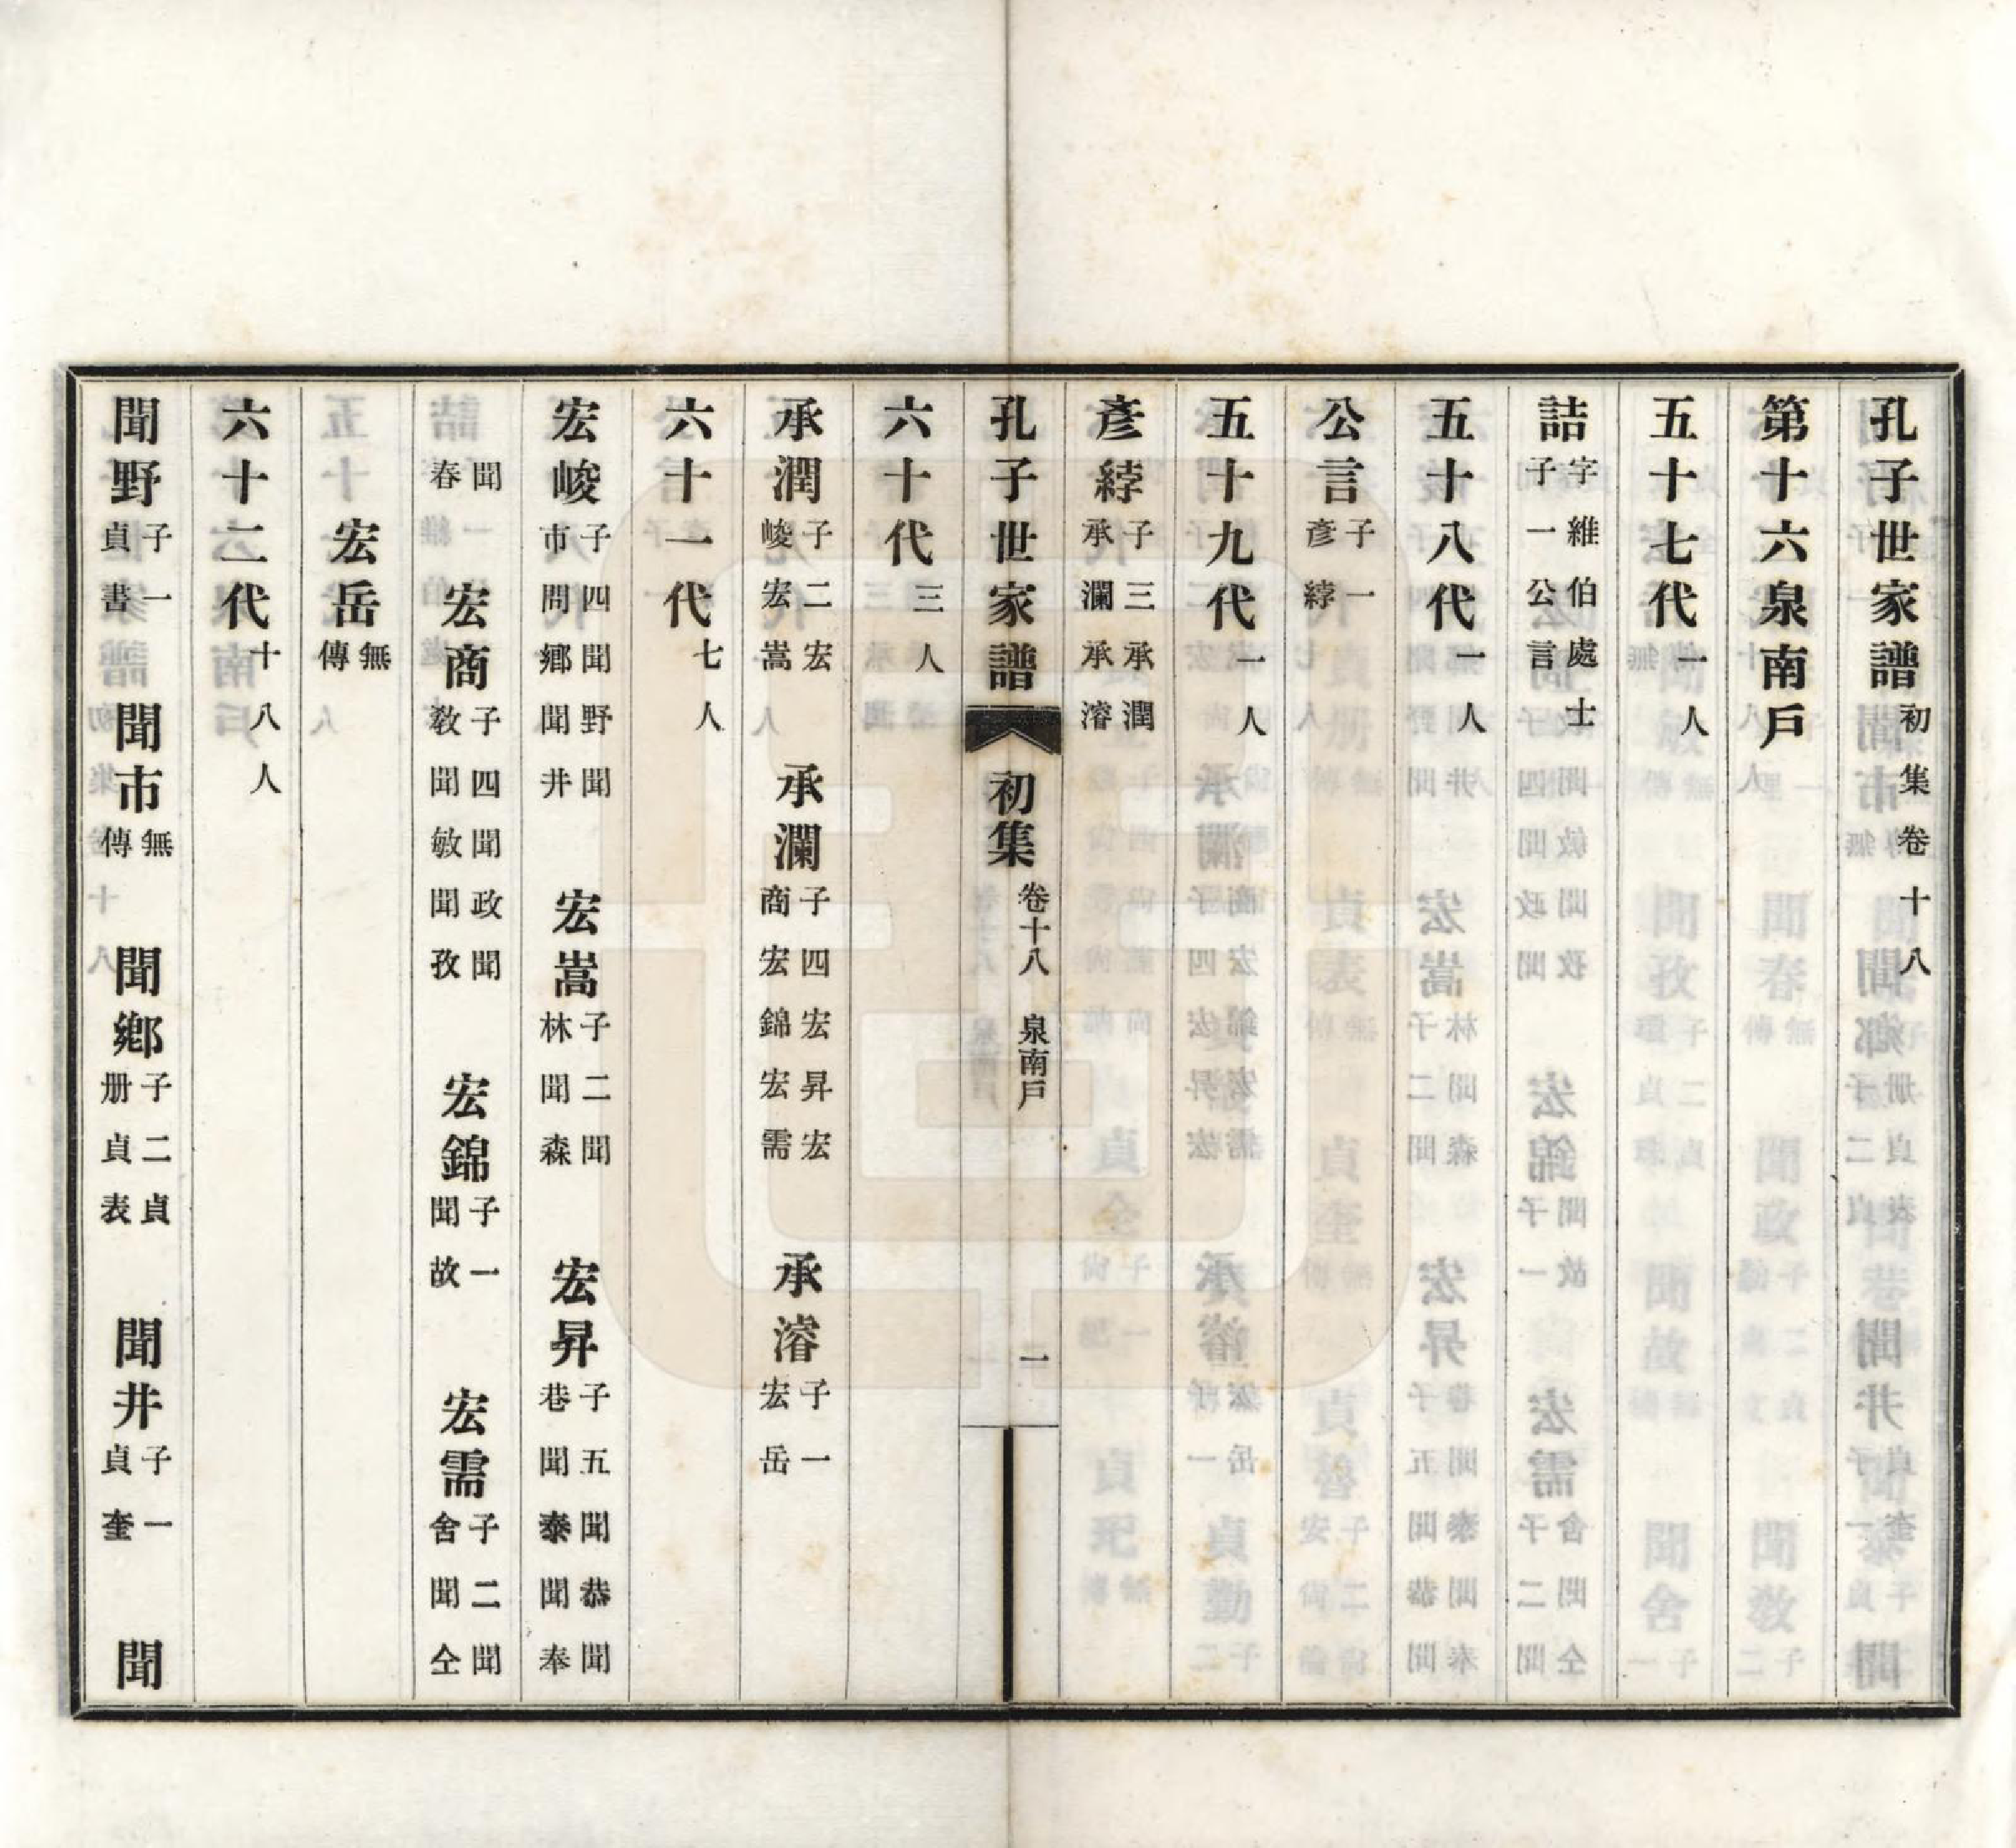 孔子世家譜初集卷十八
第十六泉南戶
五十七代一人
詰字維伯處士子一公言
五十八代一人
公言子一彥綍
五十九代一人
彥綍子三承潤承瀾承濬
孔子世家譜 初集 卷十八 泉南戶 一
六十代三人
承潤子二宏峻宏嵩 承瀾子四宏商宏錦宏昇宏需 承濬子一宏岳
六十一代七人
宏峻子四聞野聞市問鄉聞井 宏嵩子二聞林聞森 宏昇子五聞巷聞泰聞恭聞奉聞
春 宏商子四聞政聞教聞敏聞孜 宏錦子一聞故 宏需子二聞舍聞仝
宏岳無傳
六十二代十八人
聞野子一貞書 聞市無傳 聞鄉子二貞册貞表 聞井子一貞奎 聞